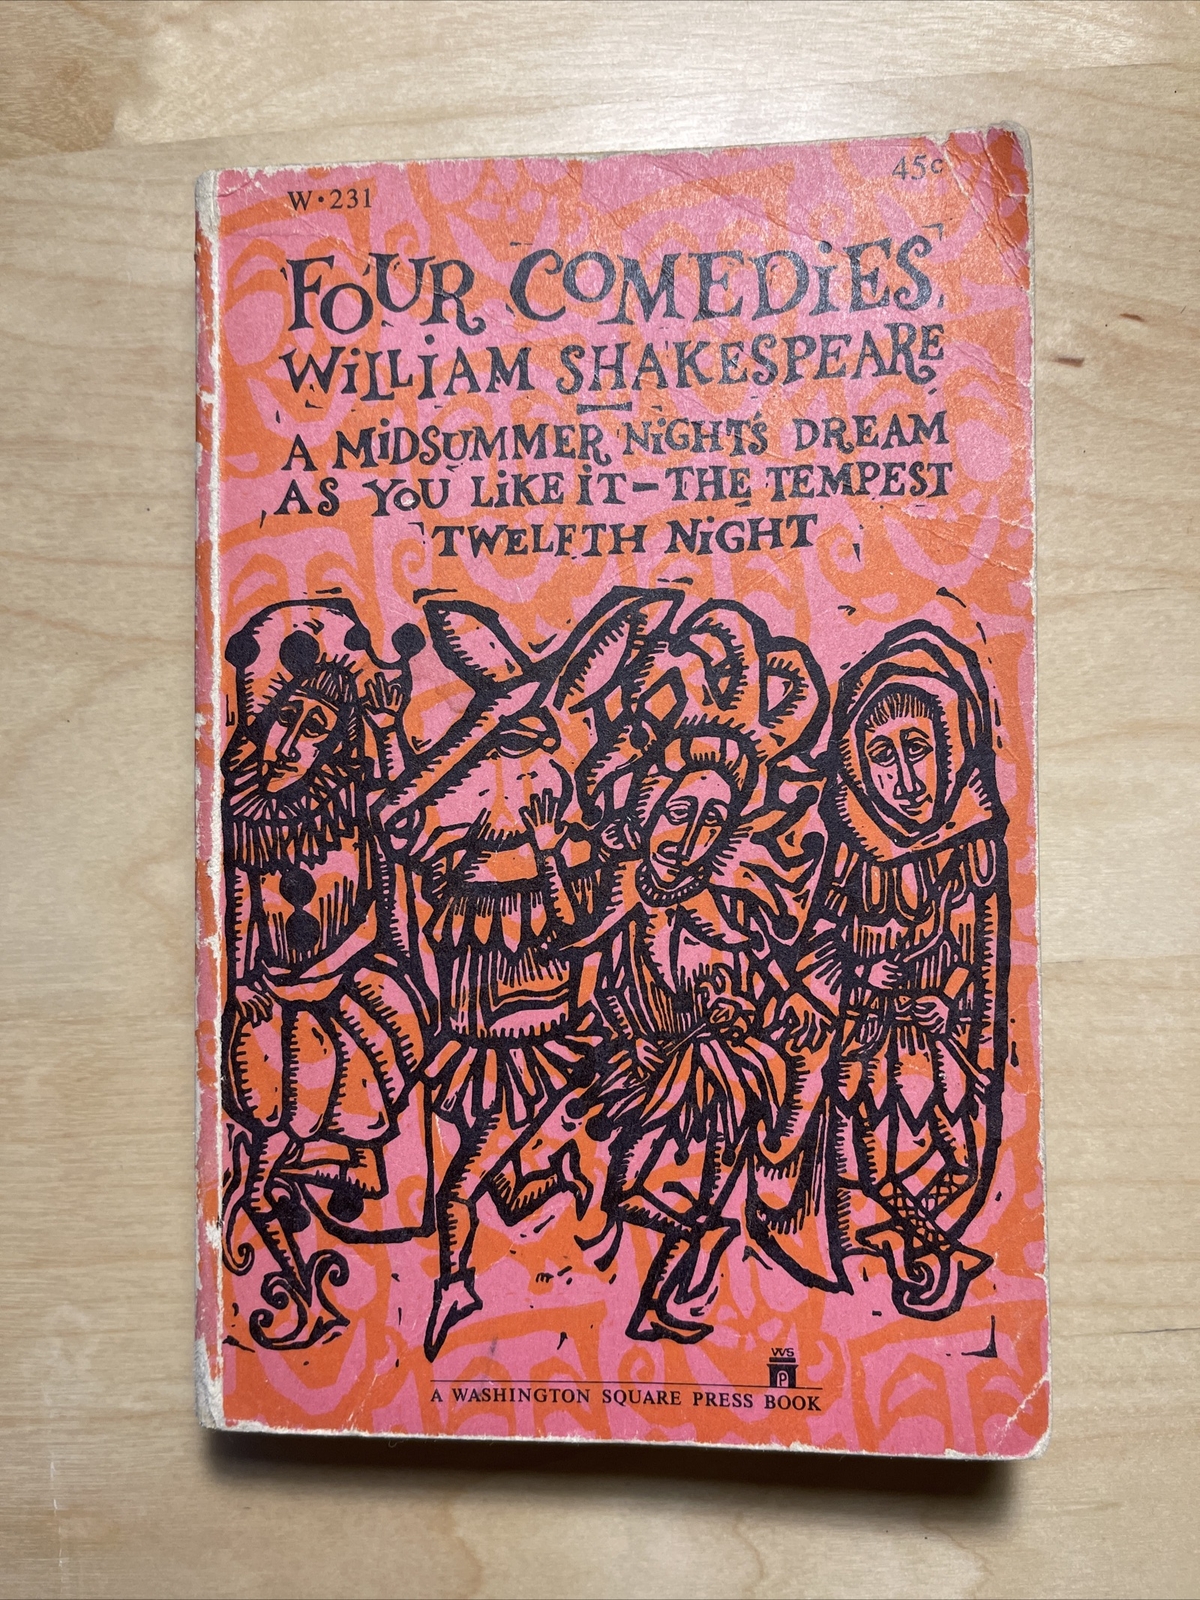 W·231
45¢
FOUR COMEDiES
WiLLiAM SHAKESPEARE
A MiDSUMMER NiGHT'S DREAM
AS YOU LiKE iT—THE TEMPEST
TWELFTH NiGHT
WS
P
A WASHINGTON SQUARE PRESS BOOK